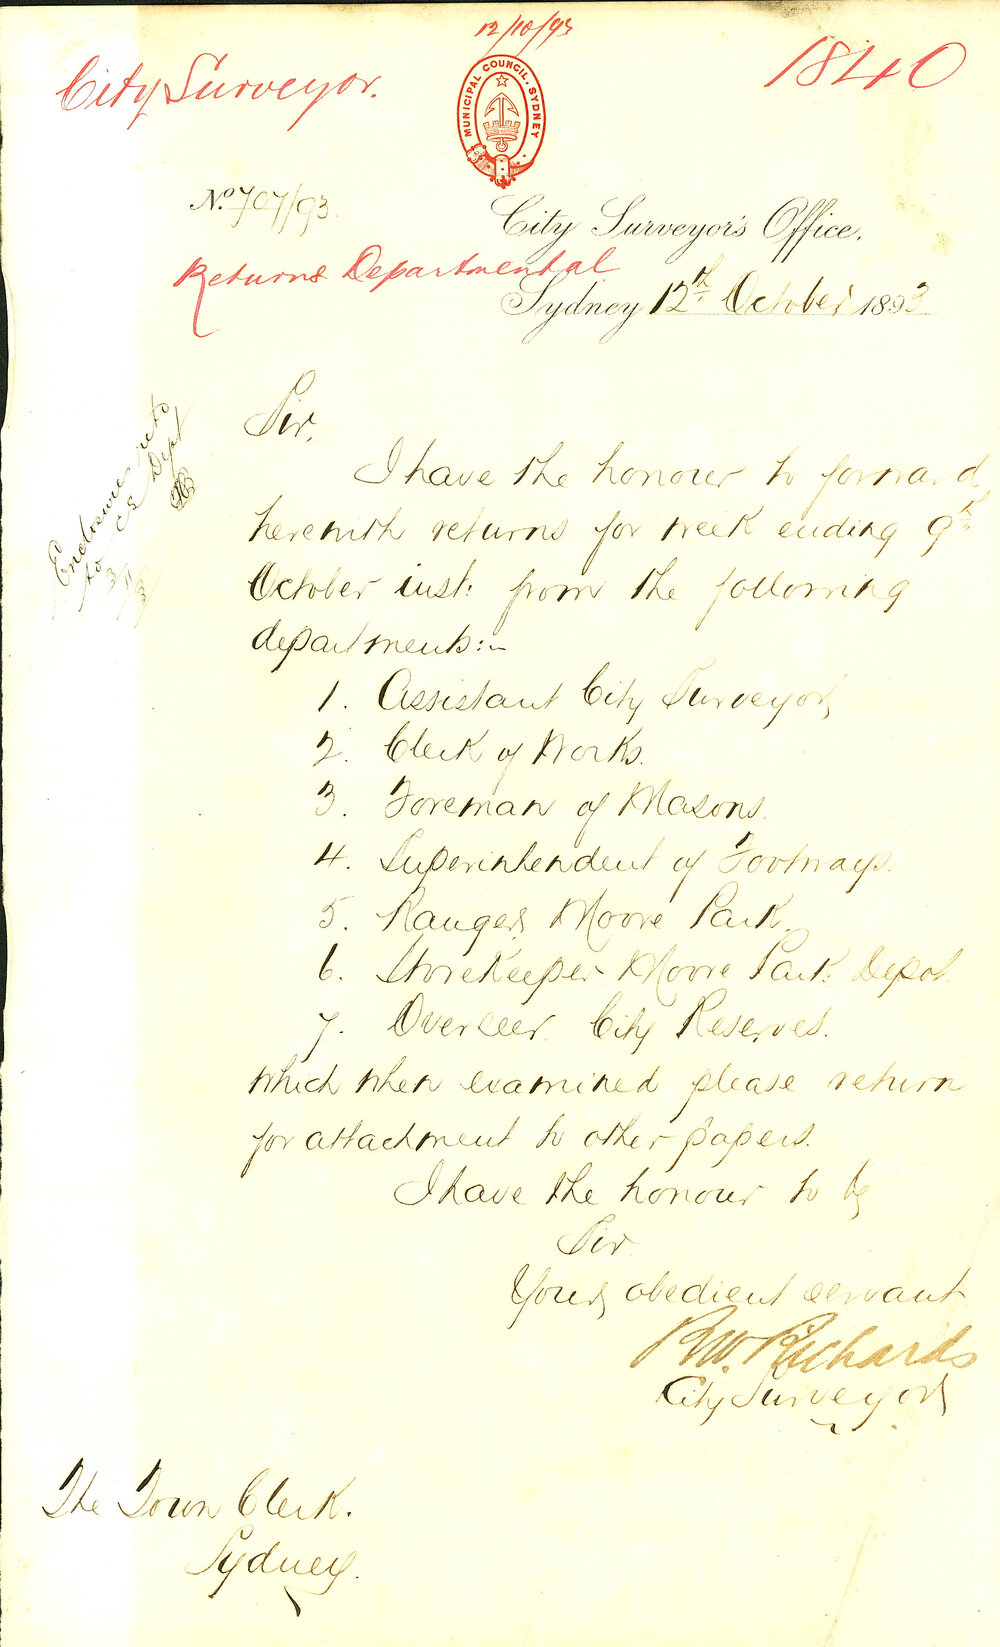 12/10/93
City Surveyor.
1840
MUNICIPAL COUNCIL. SYDNEY
No. 707/93.
City Surveyor's Office.
Returns Departmental
Sydney 12th October 1893
Enclosures retd
to CS Dept
3/11/93
Sir,
I have the honour to forward
herewith returns for week ending 9th
October inst: from the following
departments:-
1. Assistant City Surveyor,
2. Clerk of Works.
3. Foreman of Masons.
4. Superintendent of Footways.
5. Ranger, Moore Park.
6. Storekeeper Moore Park Depot
7. Overseer City Reserves.
which when examined please return
for attachment to other papers.
I have the honour to be
Sir
Your obedient servant
R.W. Richards
City Surveyor
The Town Clerk.
Sydney.